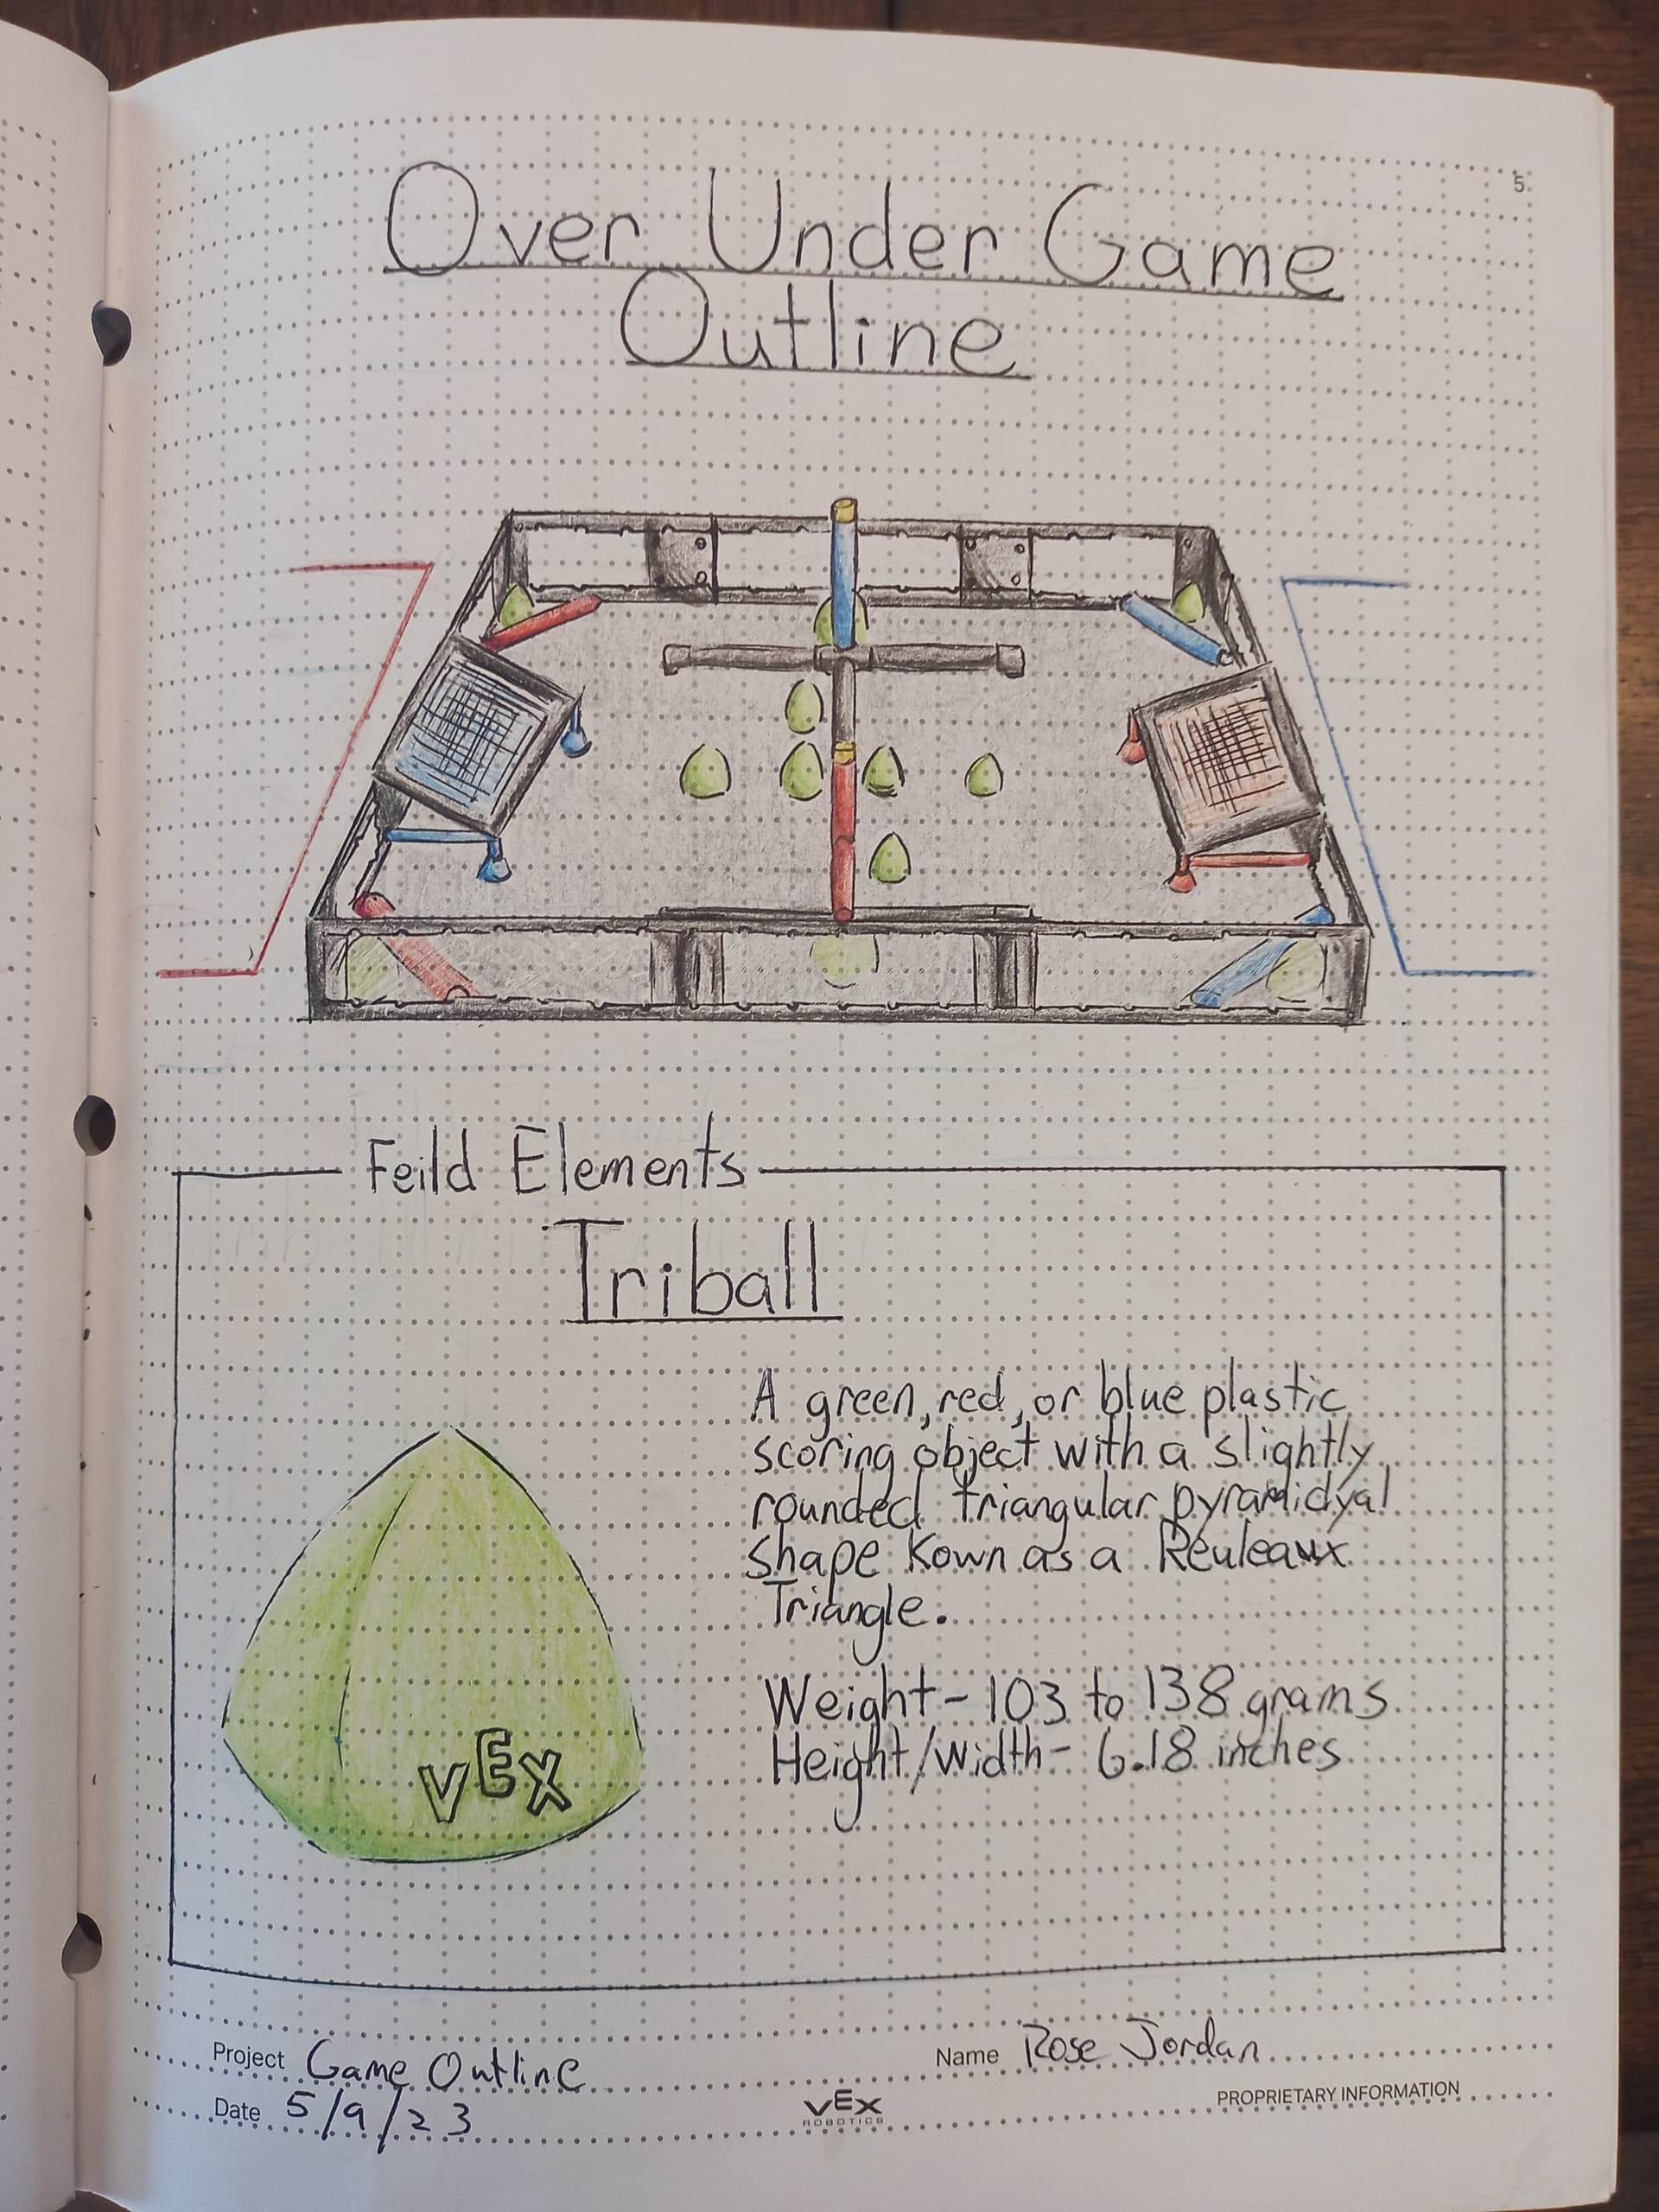 5
Over Under Game
Outline
Feild Elements
Triball
A green, red, or blue plastic
scoring object with a slightly
rounded triangular pyramidyal
shape Kown as a Reuleaux
Triangle.
Weight - 103 to 138 grams
Height/width - 6.18 inches
VEX
Project Game Outline
Name Rose Jordan
Date 5/9/23
VEX
ROBOTICS
PROPRIETARY INFORMATION